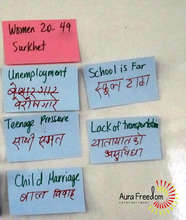 Women 20-49
Surkhet
Unemployment
बेरोजगार
School is Far
स्कूल टाढा
Teenage Pressure
साथी संगत
Lack of transportation
यातायातको
असुविधा
Child Marriage
बाल विवाह
Aura Freedom